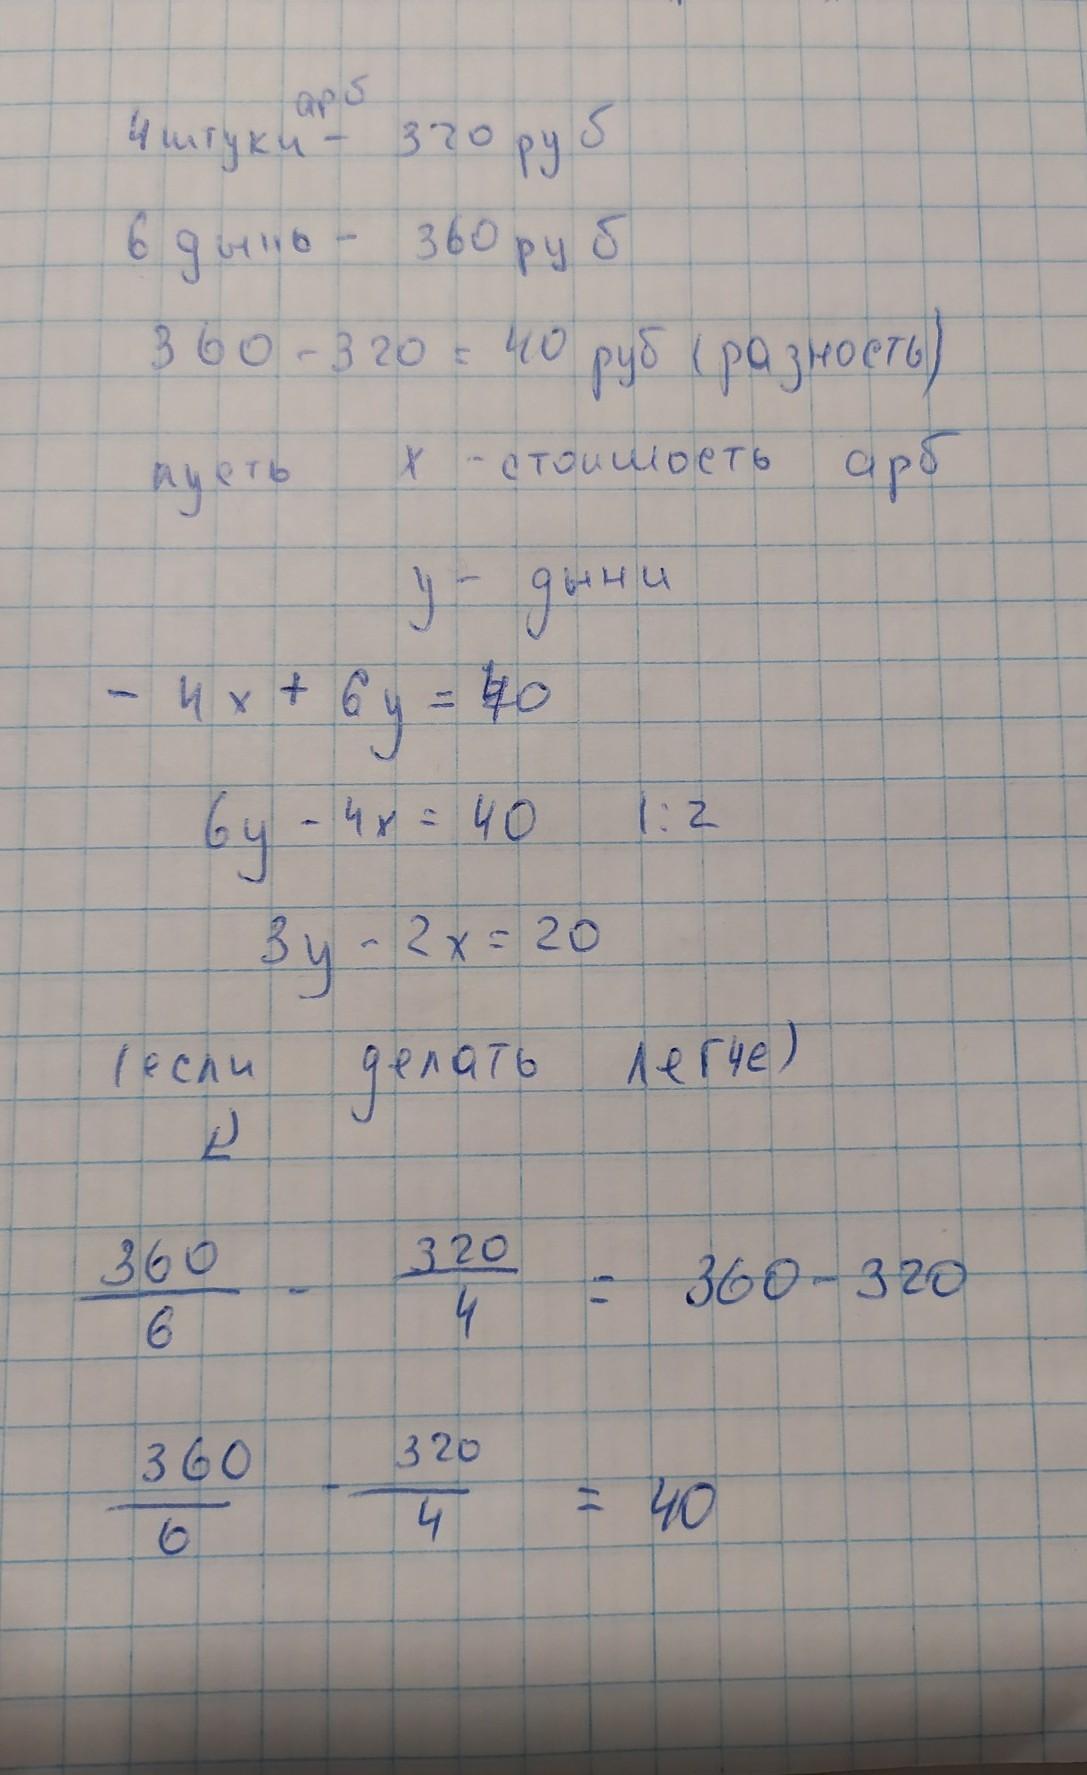 арб
4 штуки - 320 руб
6 дынь - 360 руб
360 - 320 = 40 руб (разность)
пусть x - стоимость арб
y - дыни
- 4x + 6y = 40
6y - 4x = 40 |:2
3y - 2x = 20
(если делать легче)
360/6 - 320/4 = 360 - 320
360/6 - 320/4 = 40